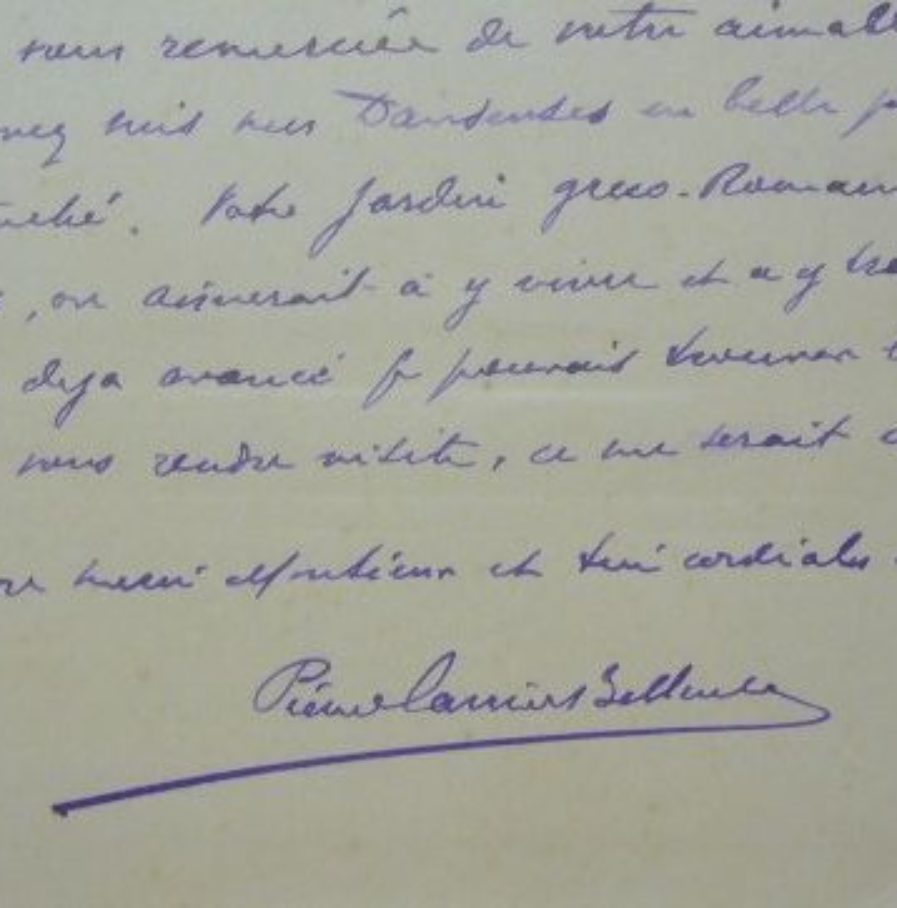 vous remerciée de votre aimabl
avez mis mes Danseuses en belle p
ché. Votre Jardin greco-Romain
, on aimerait à y vivre et a y
déja avancé je pourrais trouver
vous rendre visite, ce me serait
merci Monsieur et trés cordiales
Pierre Carrier Belleuse